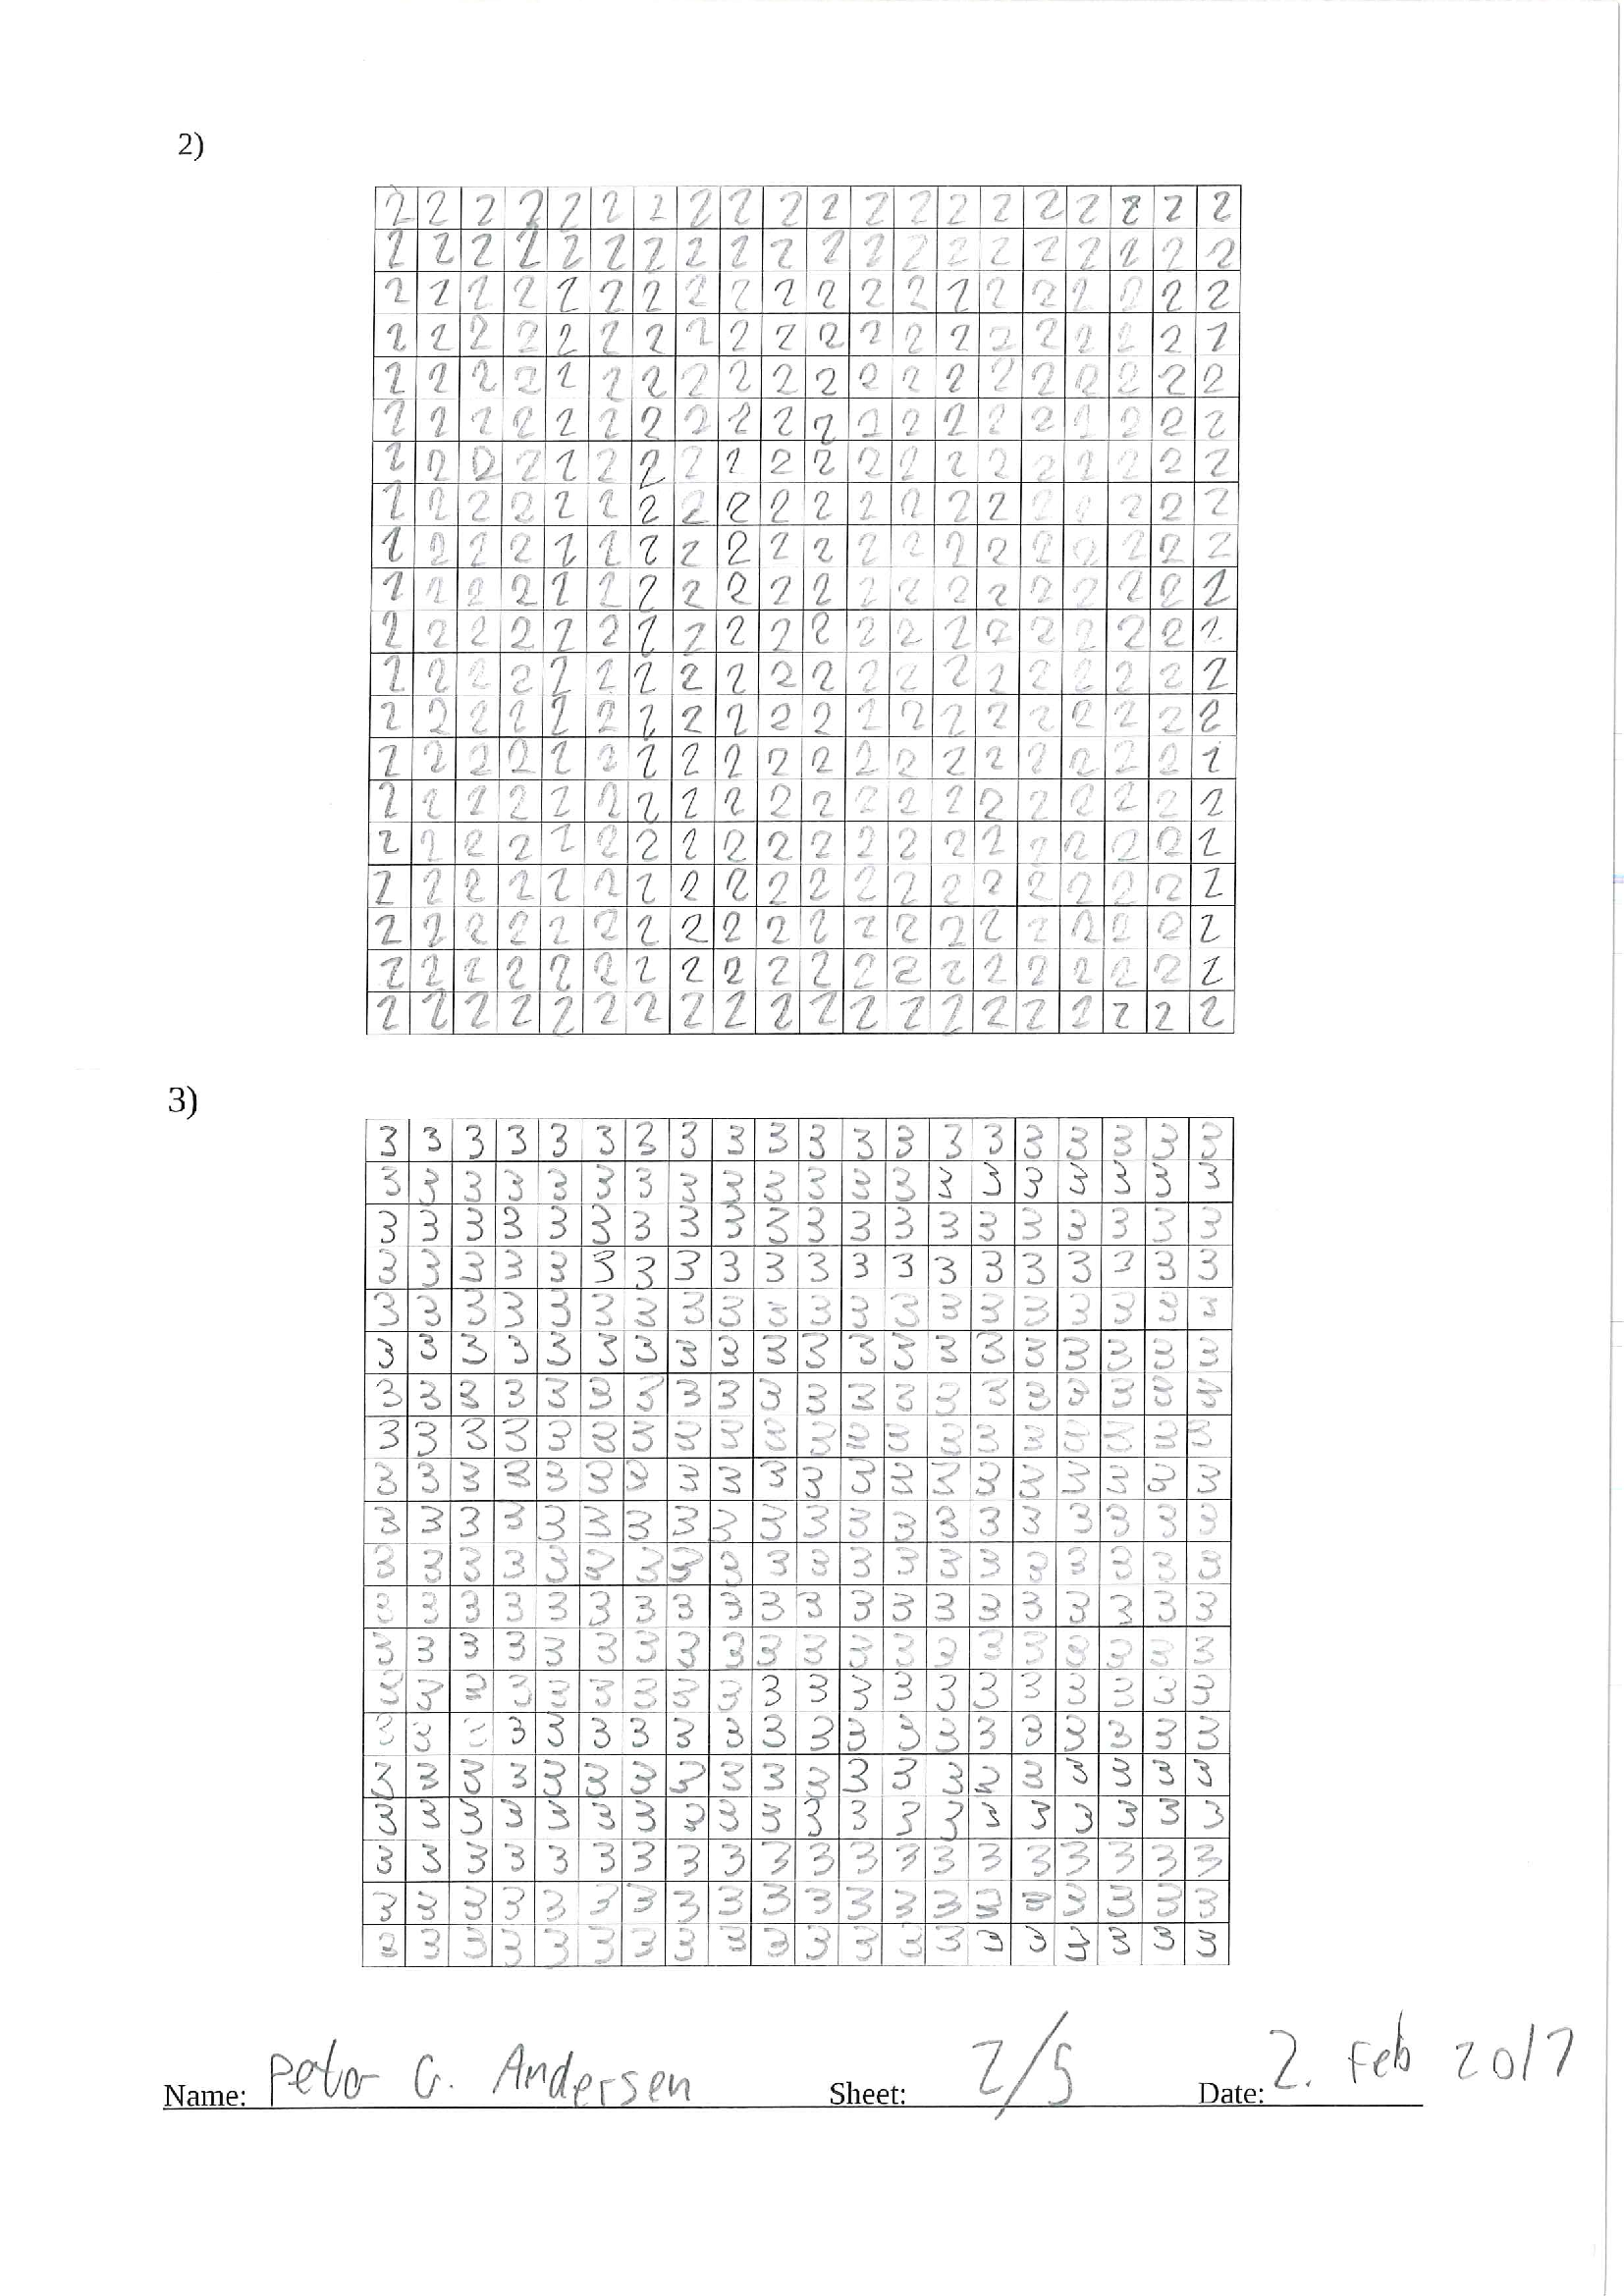 2)
2 2 2 2 2 2 2 2 2 2 2 2 2 2 2 2 2 2 2 2
2 2 2 2 2 2 2 2 2 2 2 2 2 2 2 2 2 2 2 2
2 2 2 2 2 2 2 2 2 2 2 2 2 2 2 2 2 2 2 2
2 2 2 2 2 2 2 2 2 2 2 2 2 2 2 2 2 2 2 2
2 2 2 2 2 2 2 2 2 2 2 2 2 2 2 2 2 2 2 2
2 2 2 2 2 2 2 2 2 2 2 2 2 2 2 2 2 2 2 2
2 2 2 2 2 2 2 2 2 2 2 2 2 2 2 2 2 2 2 2
2 2 2 2 2 2 2 2 2 2 2 2 2 2 2 2 2 2 2 2
2 2 2 2 2 2 2 2 2 2 2 2 2 2 2 2 2 2 2 2
2 2 2 2 2 2 2 2 2 2 2 2 2 2 2 2 2 2 2 2
2 2 2 2 2 2 2 2 2 2 2 2 2 2 2 2 2 2 2 2
2 2 2 2 2 2 2 2 2 2 2 2 2 2 2 2 2 2 2 2
2 2 2 2 2 2 2 2 2 2 2 2 2 2 2 2 2 2 2 2
2 2 2 2 2 2 2 2 2 2 2 2 2 2 2 2 2 2 2 2
2 2 2 2 2 2 2 2 2 2 2 2 2 2 2 2 2 2 2 2
2 2 2 2 2 2 2 2 2 2 2 2 2 2 2 2 2 2 2 2
2 2 2 2 2 2 2 2 2 2 2 2 2 2 2 2 2 2 2 2
2 2 2 2 2 2 2 2 2 2 2 2 2 2 2 2 2 2 2 2
2 2 2 2 2 2 2 2 2 2 2 2 2 2 2 2 2 2 2 2
2 2 2 2 2 2 2 2 2 2 2 2 2 2 2 2 2 2 2 2
3)
3 3 3 3 3 3 3 3 3 3 3 3 3 3 3 3 3 3 3 3
3 3 3 3 3 3 3 3 3 3 3 3 3 3 3 3 3 3 3 3
3 3 3 3 3 3 3 3 3 3 3 3 3 3 3 3 3 3 3 3
3 3 3 3 3 3 3 3 3 3 3 3 3 3 3 3 3 3 3 3
3 3 3 3 3 3 3 3 3 3 3 3 3 3 3 3 3 3 3 3
3 3 3 3 3 3 3 3 3 3 3 3 3 3 3 3 3 3 3 3
3 3 3 3 3 3 3 3 3 3 3 3 3 3 3 3 3 3 3 3
3 3 3 3 3 3 3 3 3 3 3 3 3 3 3 3 3 3 3 3
3 3 3 3 3 3 3 3 3 3 3 3 3 3 3 3 3 3 3 3
3 3 3 3 3 3 3 3 3 3 3 3 3 3 3 3 3 3 3 3
3 3 3 3 3 3 3 3 3 3 3 3 3 3 3 3 3 3 3 3
3 3 3 3 3 3 3 3 3 3 3 3 3 3 3 3 3 3 3 3
3 3 3 3 3 3 3 3 3 3 3 3 3 3 3 3 3 3 3 3
3 3 3 3 3 3 3 3 3 3 3 3 3 3 3 3 3 3 3 3
3 3 3 3 3 3 3 3 3 3 3 3 3 3 3 3 3 3 3 3
3 3 3 3 3 3 3 3 3 3 3 3 3 3 3 3 3 3 3 3
3 3 3 3 3 3 3 3 3 3 3 3 3 3 3 3 3 3 3 3
3 3 3 3 3 3 3 3 3 3 3 3 3 3 3 3 3 3 3 3
3 3 3 3 3 3 3 3 3 3 3 3 3 3 3 3 3 3 3 3
3 3 3 3 3 3 3 3 3 3 3 3 3 3 3 3 3 3 3 3
Name: Peter G. Andersen Sheet: 2/5 Date: 2. Feb 2017